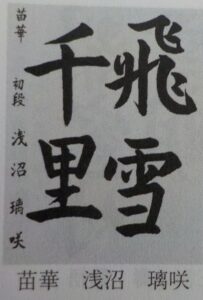 飛雪
千里
苗華 初段 浅沼璃咲
苗華 浅沼 璃咲